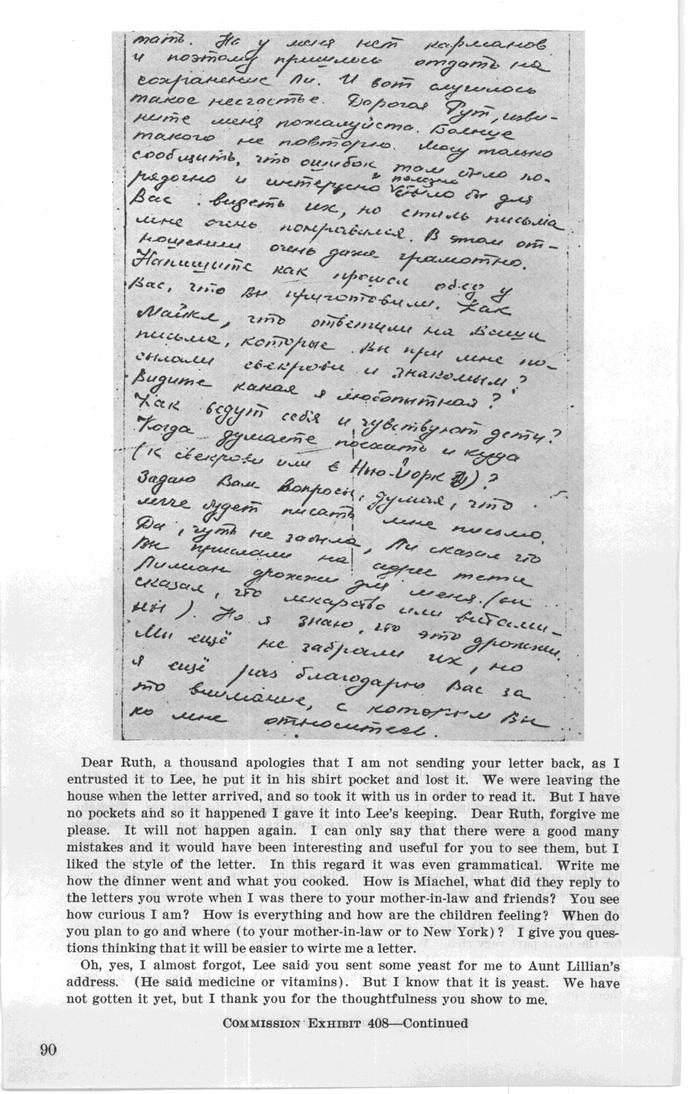 тать. Но у меня нет карманов
и поэтому пришлось отдать на
сохранение Ли. И вот случилось
такое несчастье. Дорогая Рут, изви-
ните меня пожалуйста. Больше
такого не повторю. Могу только
сообщить, что ошибок там было по-
рядочно и интересно и полезно было бы для
Вас видеть их, но стиль письма
мне очень понравился. В этом от-
ношении очень даже грамотно.
Напишите как прошел обед у
Вас, что Вы приготовили. Как
Майкл, что ответили на Ваши
письма, которые Вы при мне по-
сылали свекрови и знакомым?
Видите какая я любопытная?
Как ведут себя и чувствуют дети?
Когда думаете поехать и куда
(к свекрови или в Нью-Йорк)?
Задаю Вам вопросы, думая, что
легче будет писать мне письмо.
Да, чуть не забыла, Ли сказал что
Вы прислали на адрес тети
Лилиан дрожжи для меня. (он
сказал, что лекарство или витами-
ны). Но я знаю, что это дрожжи.
Мы ещё не забрали их, но
я ещё раз благодарю Вас за
то внимание, с которым Вы
ко мне относитесь.
Dear Ruth, a thousand apologies that I am not sending your letter back, as I
entrusted it to Lee, he put it in his shirt pocket and lost it. We were leaving the
house when the letter arrived, and so took it with us in order to read it. But I have
no pockets and so it happened I gave it into Lee's keeping. Dear Ruth, forgive me
please. It will not happen again. I can only say that there were a good many
mistakes and it would have been interesting and useful for you to see them, but I
liked the style of the letter. In this regard it was even grammatical. Write me
how the dinner went and what you cooked. How is Miachel, what did they reply to
the letters you wrote when I was there to your mother-in-law and friends? You see
how curious I am? How is everything and how are the children feeling? When do
you plan to go and where (to your mother-in-law or to New York)? I give you ques-
tions thinking that it will be easier to wirte me a letter.
Oh, yes, I almost forgot, Lee said you sent some yeast for me to Aunt Lillian's
address. (He said medicine or vitamins). But I know that it is yeast. We have
not gotten it yet, but I thank you for the thoughtfulness you show to me.
COMMISSION EXHIBIT 408—Continued
90